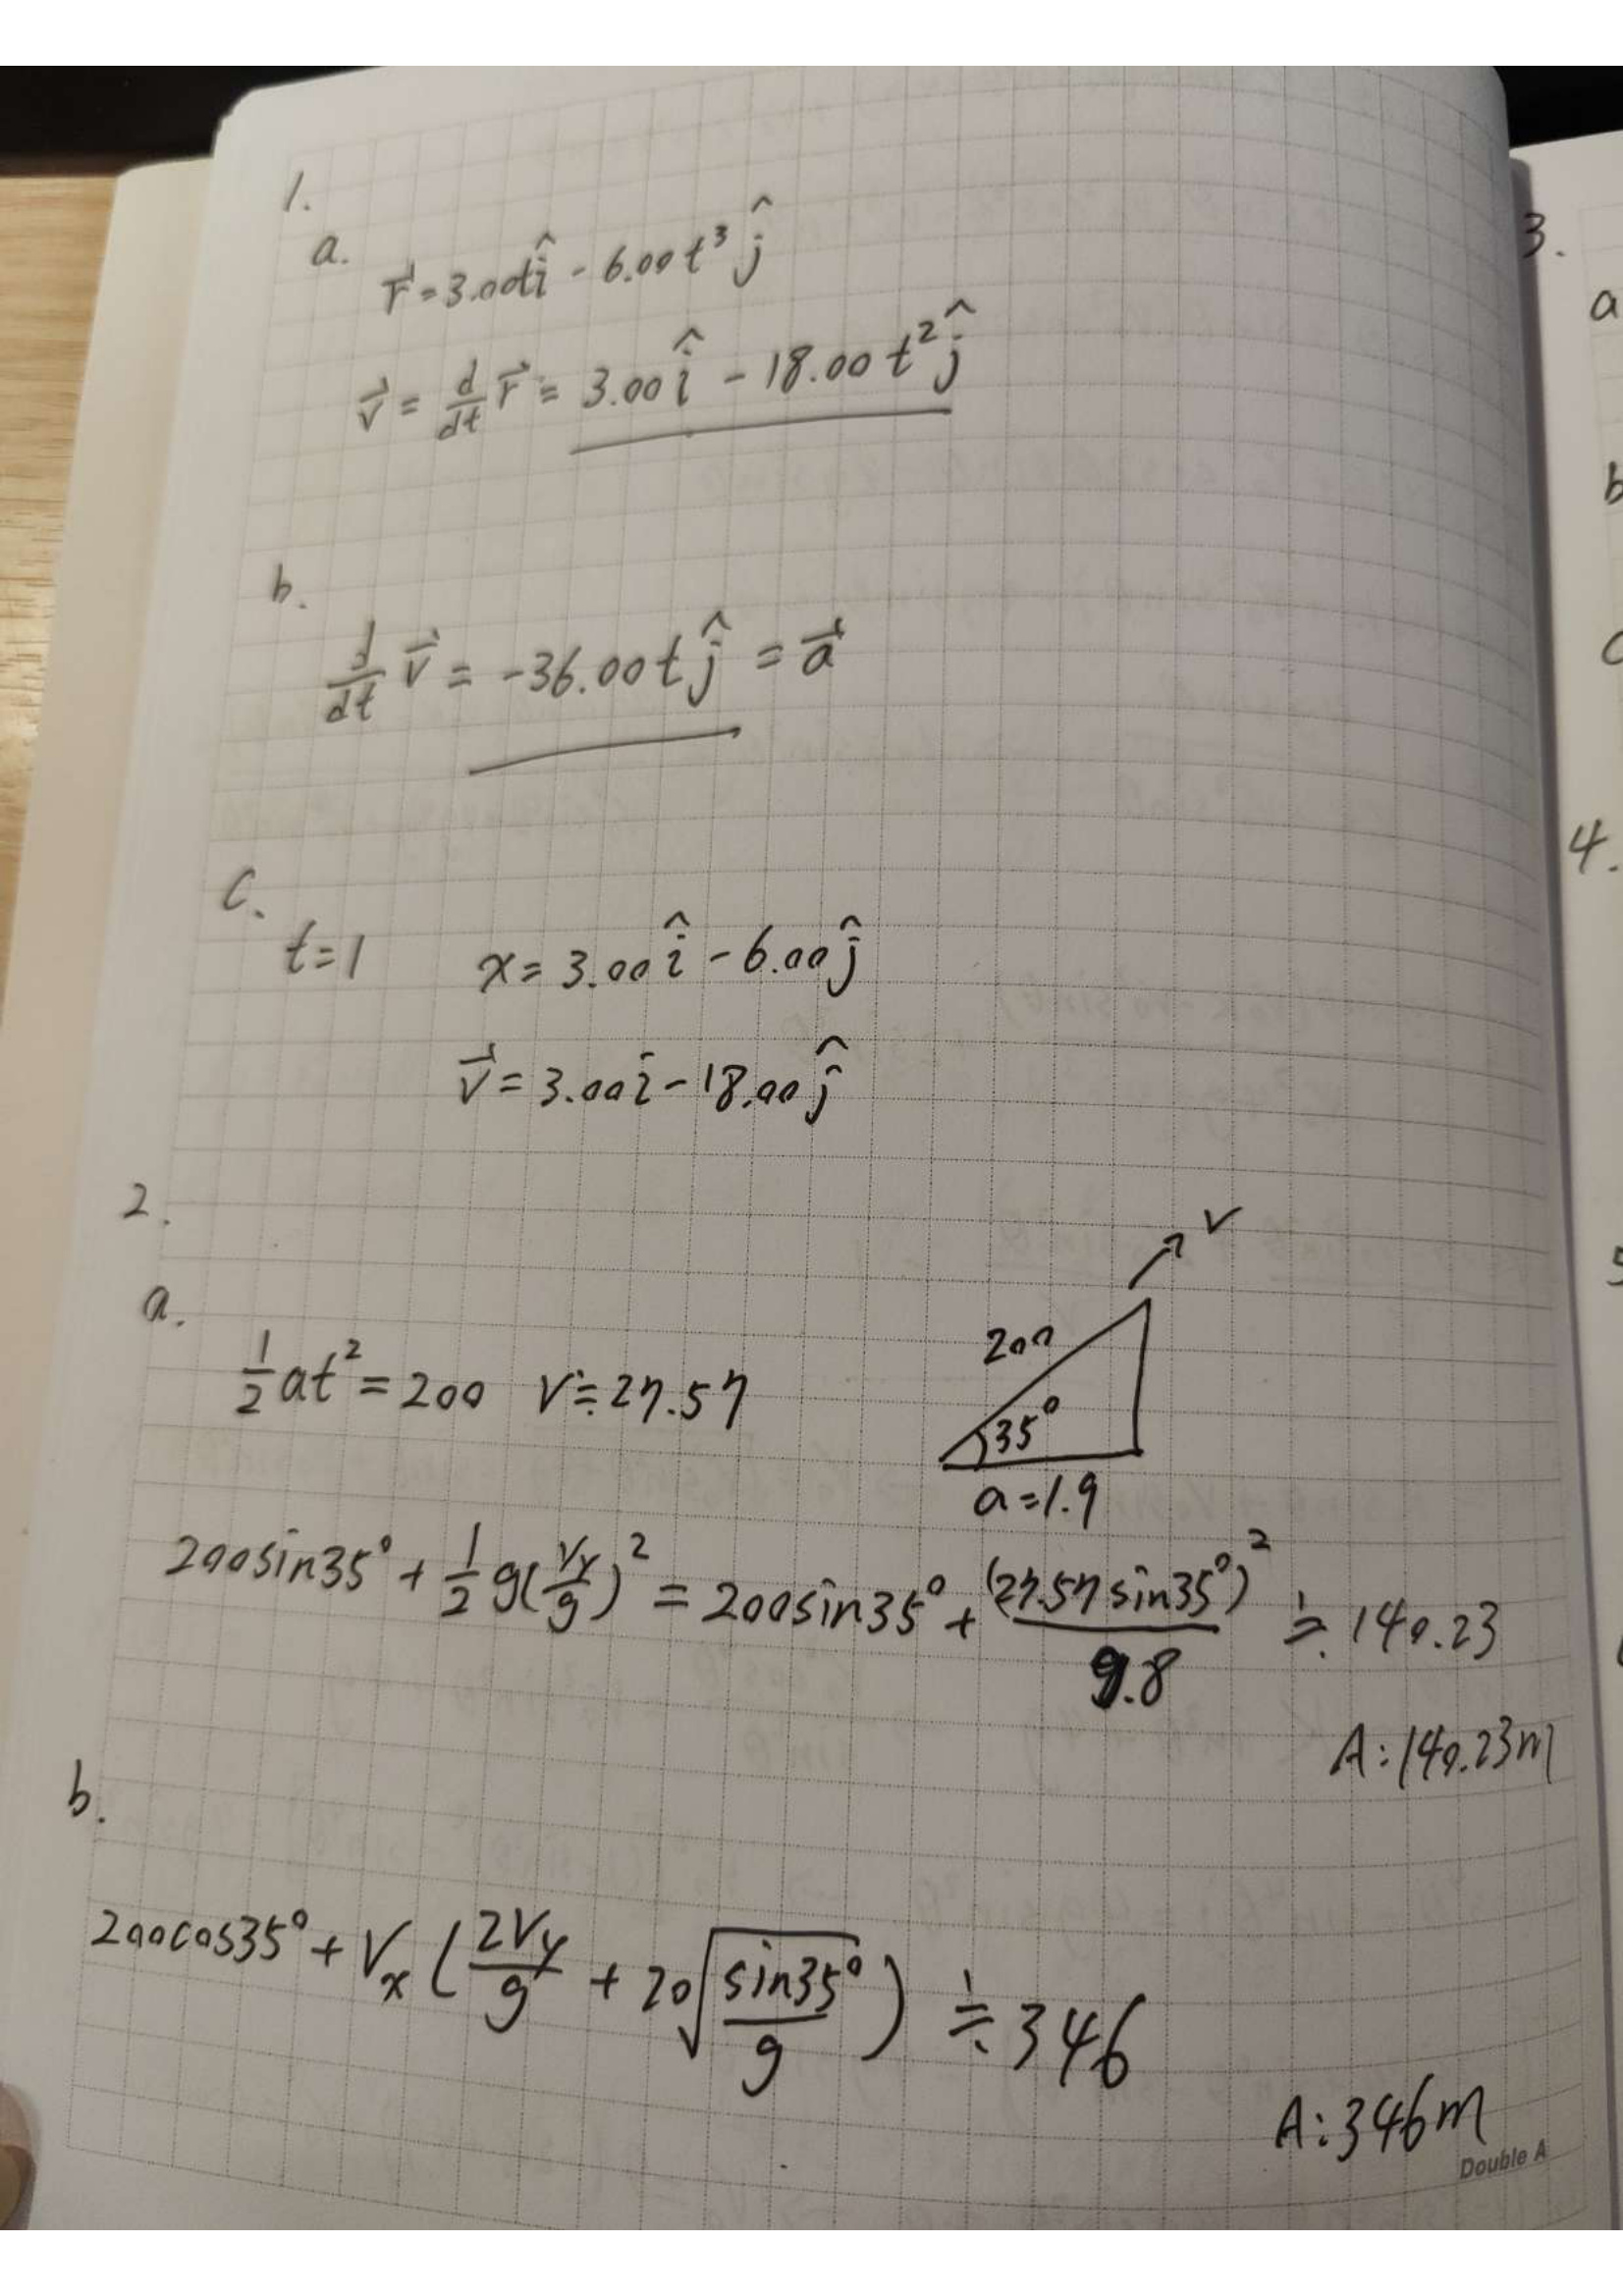 1.
a.
r⃗ = 3.00t î - 6.00 t³ ĵ
v⃗ = d/dt r⃗ = 3.00 î - 18.00 t² ĵ
b.
d/dt v⃗ = -36.00 t ĵ = a⃗
c.
t=1 x = 3.00 î - 6.00 ĵ
v⃗ = 3.00 i - 18.00 ĵ
2.
a.
1/2 at² = 200 v ≒ 27.57
v
200
35°
a=1.9
200sin35° + 1/2 g(Vy/g)² = 200sin35° + (27.57 sin35°)²/9.8 ≒ 140.23
A: 140.23m
b.
200cos35° + Vx (2Vy/g + 20√(sin35°/g)) ≒ 346
A: 346m
Double A
3.
a
b
c
4.
5